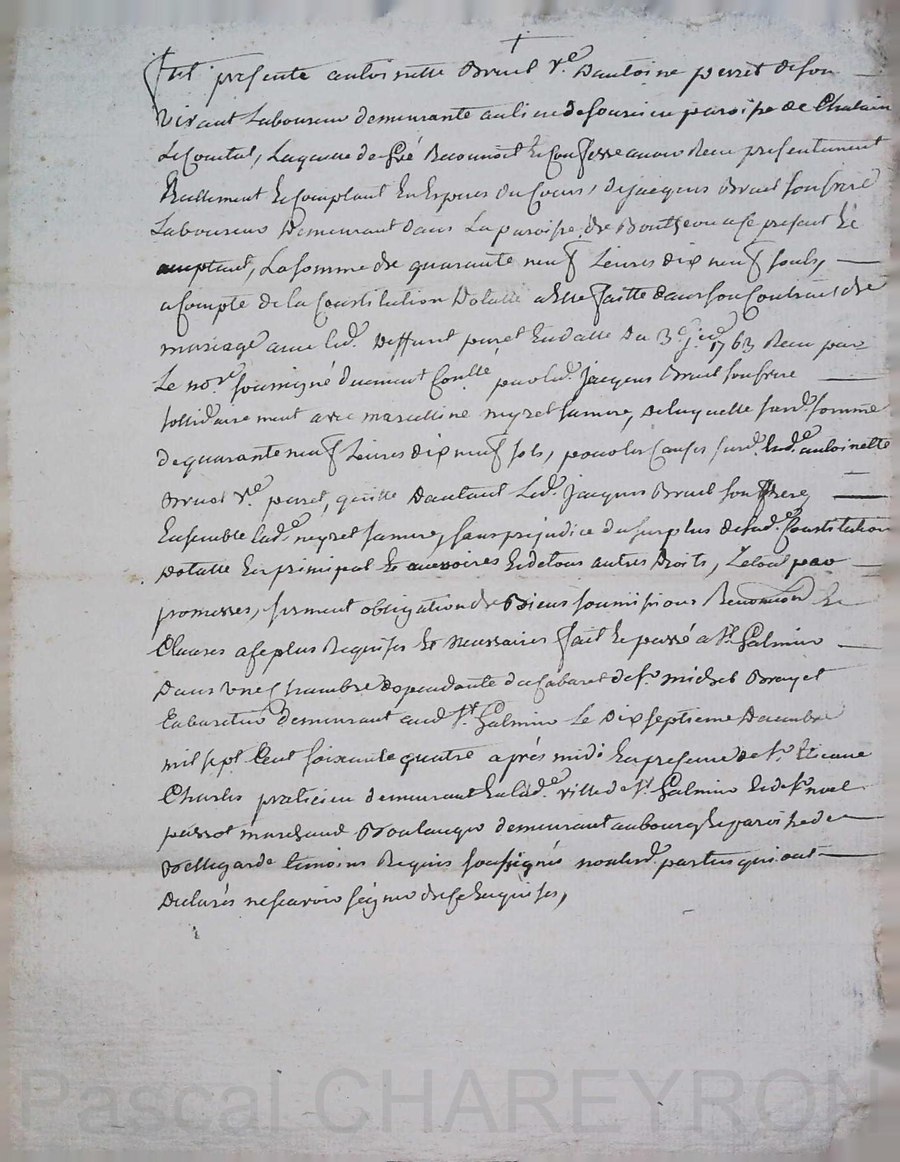 Fut presente antoinette Bruel v.e d'antoine perret de son
vivant Laboureur demeurante au lieu de            paroisse de Chalain
Le Comtal, Laquelle de gré Reconnoit et Confesse avoir Recu presentement
Reellement et Comptant En Especes du Cours, de jacques Bruel son frere
Laboureur Demeurant dans La paroisse de Boutheon a ce present et
acceptant, La somme de quarante neuf Livres dix neuf sols,
a Compte de la Constitution Dotalle a Elle faitte dans son Contrait de
mariage avec led. Deffunt perret En datte du 3e            1763 Recu par
Le no.re soussigné duement Conllé, par led. jacques Bruel son frere
sollidairement avec marcelline neyret sa mere, De laquelle susd. somme
de quarante neuf Livres dix neuf sols, pour les Causes susd. lad.e antoinette
Bruel v.e perret, quitte D'autant Led. jacques Bruel son frere,
Ensemble lad.e neyret sa mere, sans prejudice du surplus de lad.e Constitution
Dotalle En principal et accessoires et de tous autres Droits, Le tout par
promesses, serment obligation de Biens soumissions Renonciation et
Clauses a ce plus Requises et Necessaires fait et passé a St. Galmier
Dans une Chambre dependante du Cabaret de sr. michel Brayet
Cabaretier demeurant aud. St. Galmier Le dix septieme Decembre
mil sept Cent soixante quatre après midi En presence de sr. Etienne
Charles praticien demeurant En lad.e ville de St. Galmier et de sr. noel
            marchand Boulanger demeurant au bourg et paroisse de
Bellegarde temoins Requis soussignés non lesd. parties qui ont
Declarés ne scavoir signer de ce Enquises,
Pascal CHAREYRON